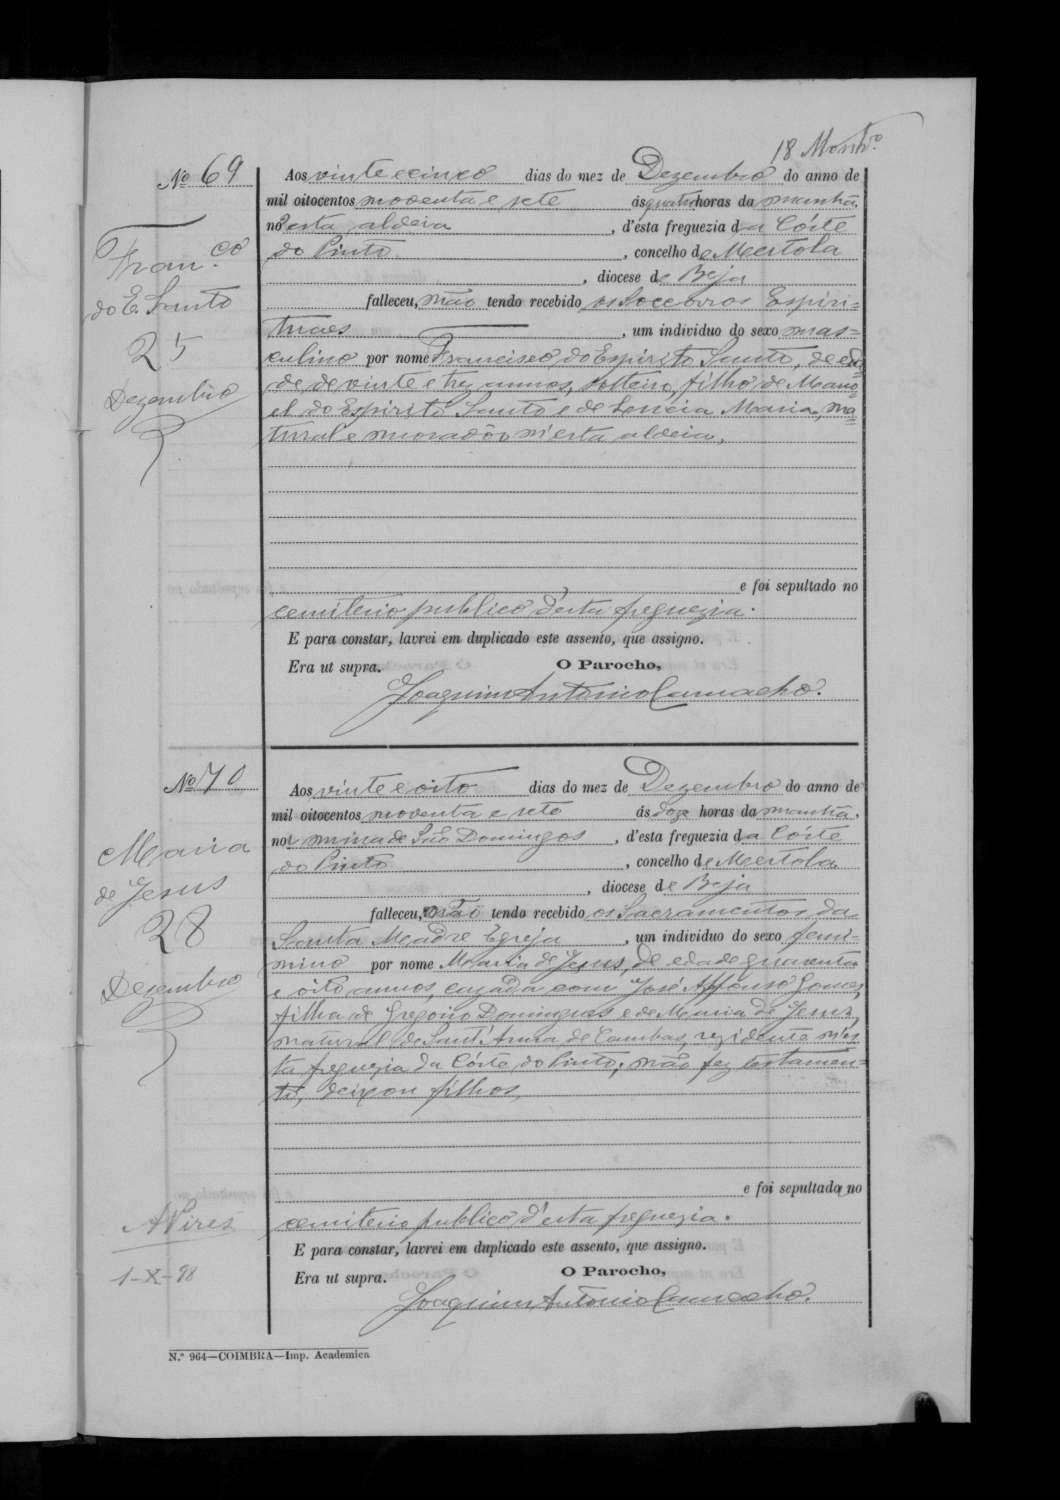 18
Nº 69
Aos vinte e cinco dias do mez de Dezembro do anno de
mil oitocentos noventa e sete ás quatro horas da manhã,
n'esta aldeia, d'esta freguezia da Côrte
do Pinto, concelho de Mertola
, diocese de Beja
falleceu, não tendo recebido os Soccorros Espiri=
tuaes, um individuo do sexo mas=
culino por nome Francisco do Espirito Santo, de eda=
de de vinte e trez annos, solteiro, filho de Mano=
el do Espirito Santo e de Lucia Maria, na=
tural e moradôr n'esta aldeia,
e foi sepultado no
cemiterio publico d'esta freguezia.
E para constar, lavrei em duplicado este assento, que assigno.
Era ut supra. O Parocho,
Joaquim Antonio Camacho.
Fran.co
do E. Santo
25
Dezembro
Nº 70
Aos vinte e oito dias do mez de Dezembro do anno de
mil oitocentos noventa e sete ás doze horas da manhã,
na mina de São Domingos, d'esta freguezia da Côrte
do Pinto, concelho de Mertola
, diocese de Beja
falleceu, não tendo recebido os Sacramentos da
Santa Madre Egreja, um individuo do sexo femi-
nino por nome Maria de Jesus, de edade quarenta
e oito annos, cazada com José Affonso Gomez
filha de Gregorio Domingues e de Maria de Jesus,
natural de Sant'Anna de Cambas, rezidente n'es
ta freguezia da Côrte do Pinto; não fez testamen=
to, deixou filhos,
e foi sepultada no
cemiterio publico d'esta freguezia.
E para constar, lavrei em duplicado este assento, que assigno.
Era ut supra. O Parocho,
Joaquim Antonio Camacho.
Maria
de Jesus
28
Dezembro
APires
1-X-98
N.º 964—COIMBRA—Imp. Academica